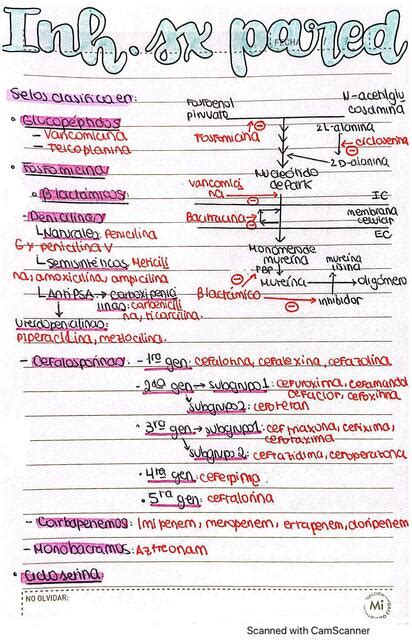 Inh. sx pared
FECHA
Se los clasifica en:
• Glucopéptidos
- Vancomicina
- Teicoplanina
• Fosfomicina
• β lactámicos:
- Penicilinas
↳ Naturales: Penicilina
G y penicilina V
↳ Semisintéticas: Meticili
na, amoxicilina, ampicilina
↳ Anti PSA → carboxipenici
linas: carbenicili
na, ticarcilina.
Ureidopenicilinas:
piperacilina, mezlocilina.
Fosfoenol
piruvato
N-acetilglu
cosamina
Fosfomicina
2L-alanina
cicloserina
2D-alanina
Nucleótido
de Park
vancomici
na
IC
Bacitracina
membrana
celular
EC
Monómero de
mureína
PBP
mureína
lisina
Mureína
oligómero
β lactámico
inhibidor
- Cefalosporinas
- 1ra gen: cefalotina, cefalexina, cefazolina
- 2da gen → subgrupo 1: cefuroxima, cefamandol
cefaclor, cefoxima
subgrupo 2: cefotetan
- 3ra gen → subgrupo 1: ceftriaxona, cefixima,
cefotaxima
subgrupo 2: ceftazidima, cefoperazona
• 4ta gen: cefepima.
• 5ra gen: ceftalorina
- Carbapenemos: Imipenem, meropenem, ertapenem, doripenem
- Monobactamos: Aztreonam
• Cicloserina
NO OLVIDAR:
Mi
Scanned with CamScanner